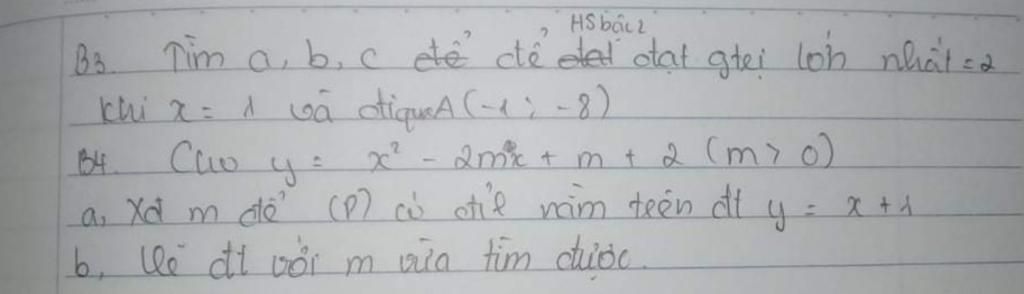 HS bậc 2
B3. Tìm a, b, c để để đạt đạt gtrị lớn nhất = 2
khi x = 1 và đi qua A (-1 ; -8)
B4. Cho y = x² - 2mx + m + 2 (m > 0)
a, Xđ m để (P) có đỉ nằm trên đt y = x + 1
b, Vẽ đt với m vừa tìm được.